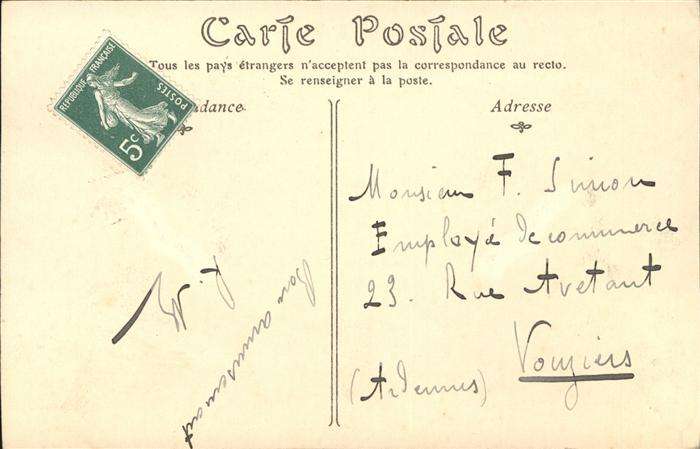 Carte Postale
Tous les pays étrangers n'acceptent pas la correspondance au recto.
Se renseigner à la poste.
RÉPUBLIQUE FRANÇAISE
POSTES
5c
dance
Adresse
Monsieur F. Simon
Employé de commerce
23. Rue Avetant
Vouziers
(Ardennes)
Bon amusement